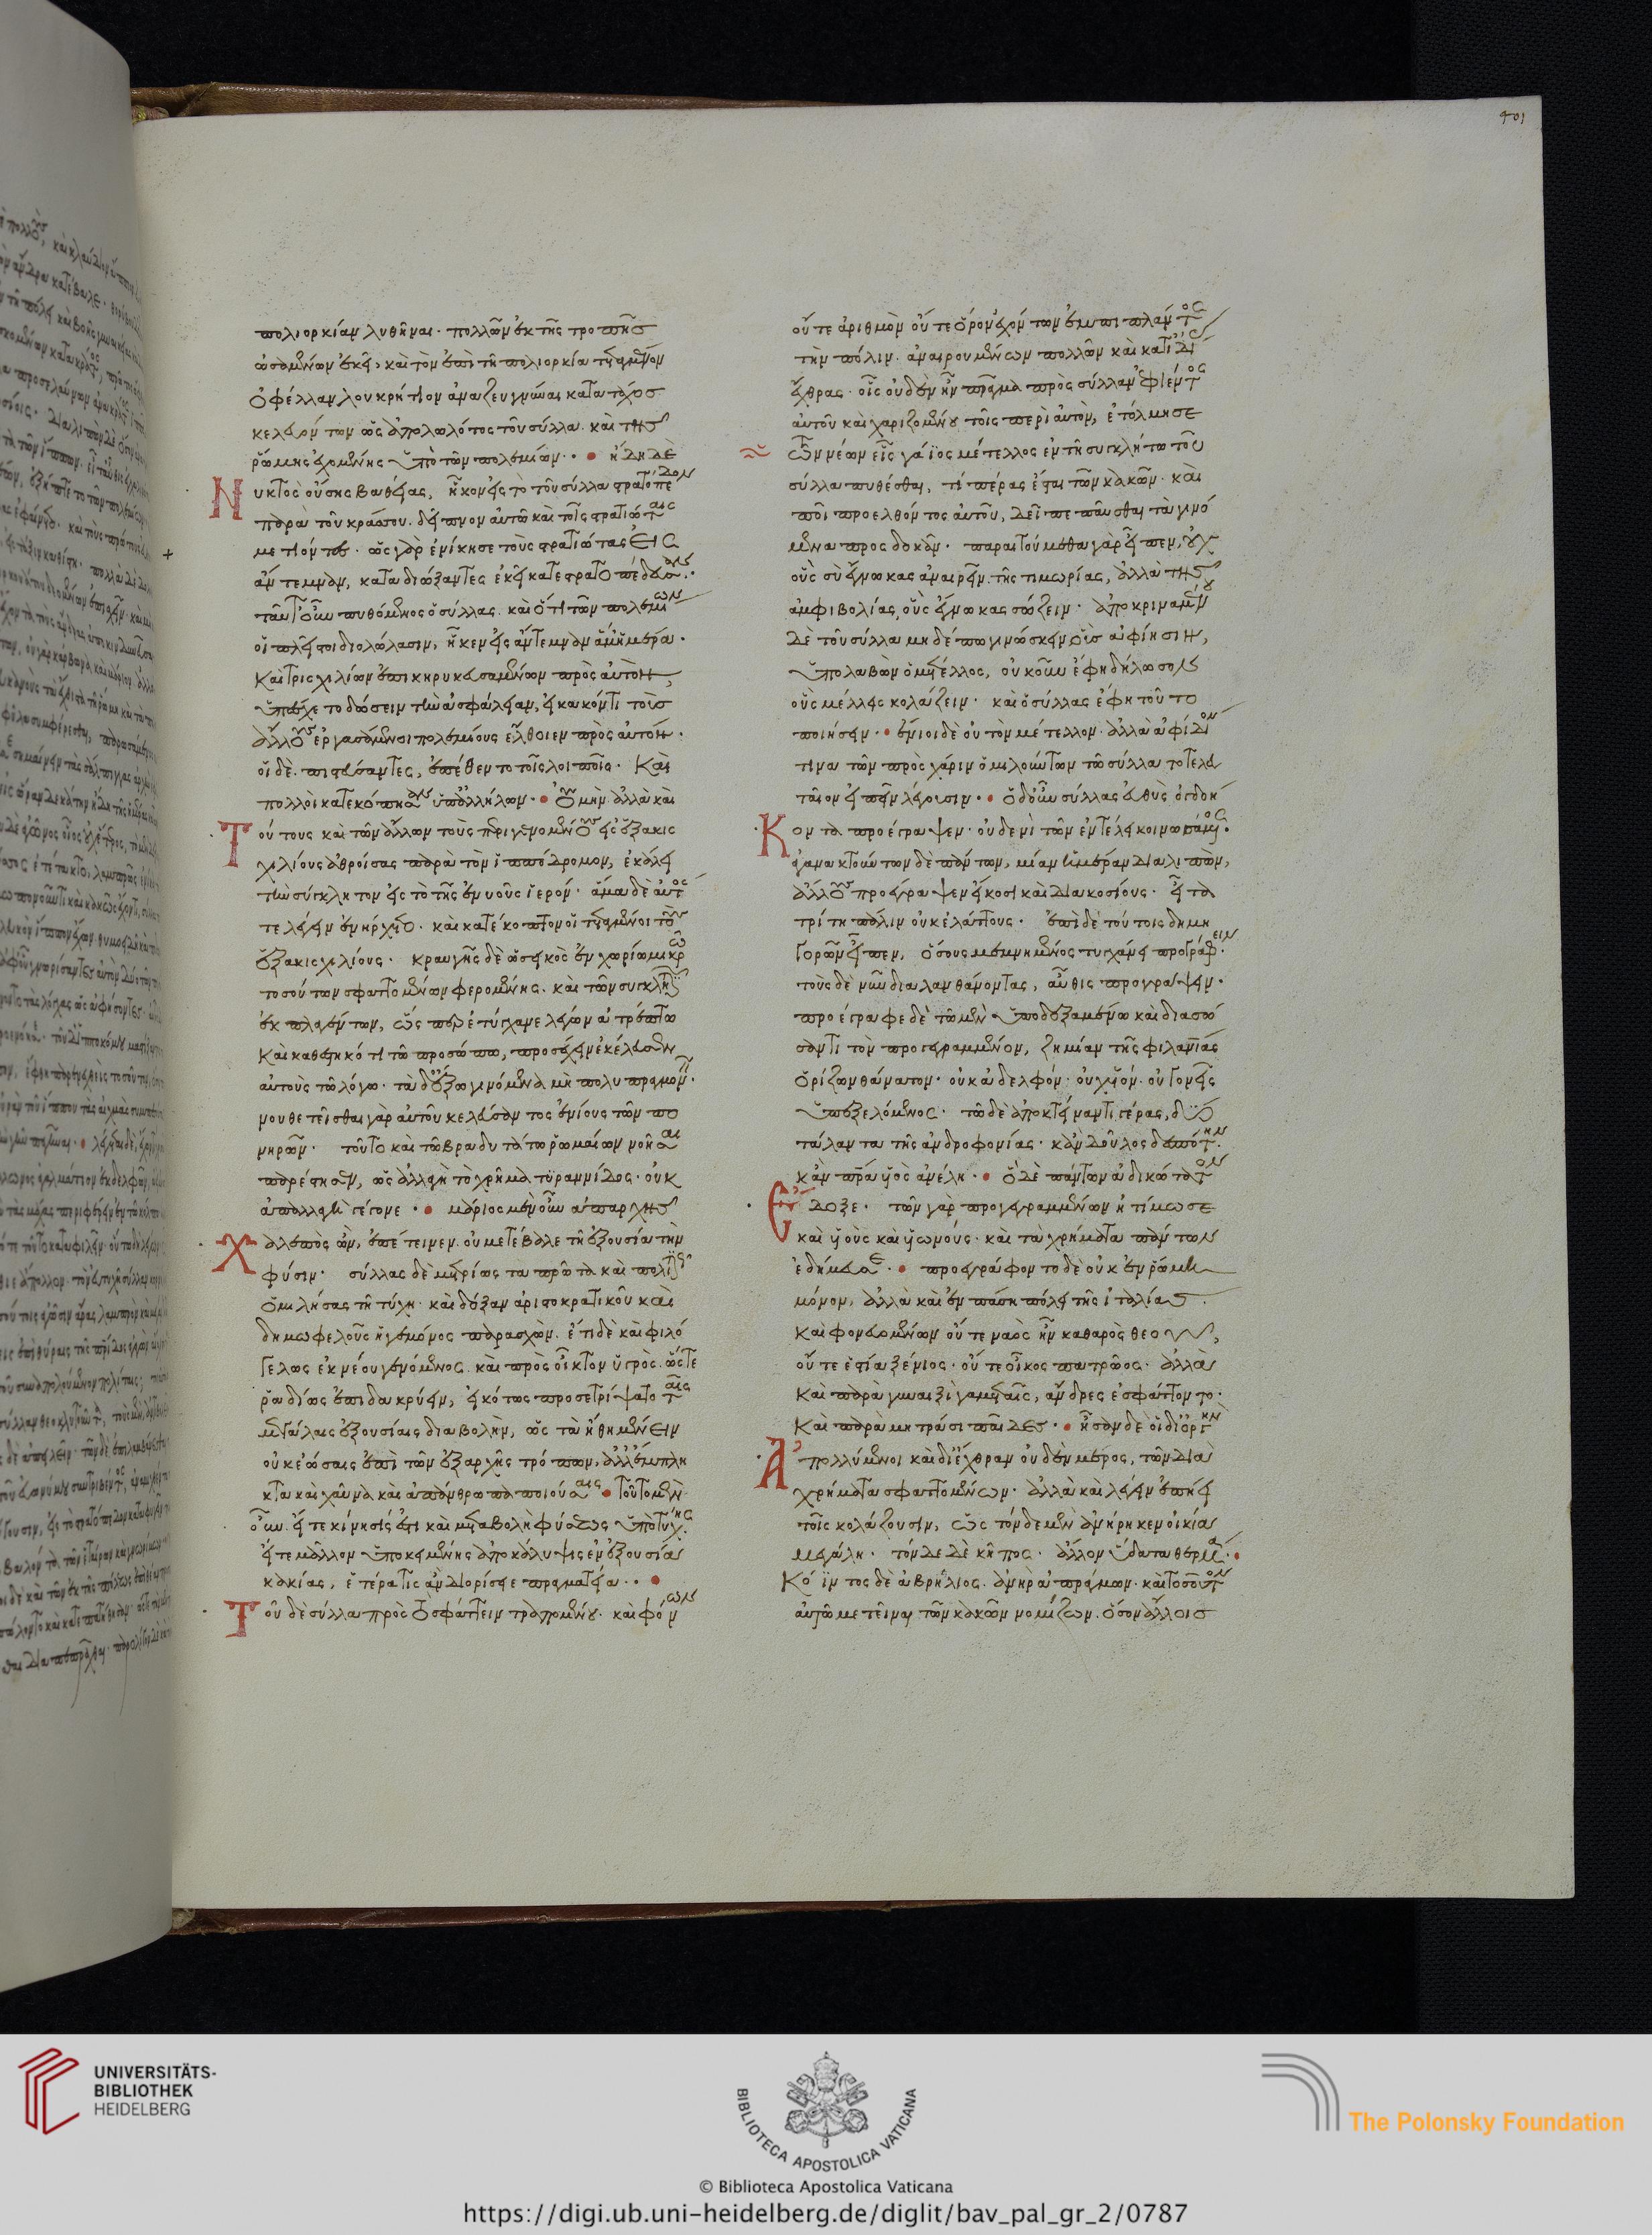 401
πολιορκίαν λυθῆναι. πολλῶν ἐκ τῆς τροπῆς
ὠσαμένων ἐκεῖ, καὶ τὸν ἐπὶ τῆ πολιορκία τεταγμένον
Ὀφέλλαν λουκρήτιον ἀναζευγνύναι κατὰ τάχος
κελευόντων ὡς ἀπολωλότος τοῦ σύλλα. καὶ τῆς
ῥώμης ἐχομένης ὑπὸ τῶν πολεμίων. ἤδη δὲ
Νυκτὸς οὔσης βαθείας, ἧκον εἰς τὸ τοῦ σύλλα στρατόπεδον
παρὰ τοῦ κράσσου. δεῖπνον αὐτῶ καὶ τοῖς στρατιώταις
μετιόντες. ὡς γὰρ ἐνίκησε τοὺς στρατιώτας εἰς
ἄντεμναν, καταδιώξαντες ἐκεῖ κατεστρατοπέδευσαν.
ταῦτ' οὖν πυθόμενος ὁ σύλλας. καὶ ὅτι τῶν πολεμίων
οἱ πλεῖστοι διολώλασιν, ἧκεν εἰς ἄντεμναν ἅμ' ἡμέρα.
Καὶ τρισχιλίων ἐπικηρυκευσαμένων πρὸς αὐτὸν,
ὑπέσχετο δώσειν τὴν ἀσφάλειαν, εἰ κακόν τι τοὺς
ἄλλους ἐργασάμενοι πολεμίους ἔλθοιεν πρὸς αὐτόν.
οἱ δὲ. πιστεύσαντες, ἐπέθεντο τοῖς λοιποῖς. Καὶ
πολλοὶ κατεκόπησαν ὑπ' ἀλλήλων. Οὐ μὴν ἀλλὰ καὶ
Τούτους καὶ τῶν ἄλλων τοὺς περιγενομένους εἰς ἑξακις
χιλίους ἀθροίσας παρὰ τὸν ἱππόδρομον, ἐκάλει
τὴν σύγκλητον εἰς τὸ τῆς ἐνυοῦς ἱερόν. ἅμα δὲ αὐτός
τε λέγειν ἐνήρχετο. καὶ κατέκοπτον οἱ τεταγμένοι τοὺς
ἑξακισχιλίους. κραυγῆς δὲ ὡς εἰκὸς ἐν χωρίω μικρῶ
τοσούτων σφαττομένων φερομένης. καὶ τῶν συγκλητικῶν
ἐκπλαγέντων, ὥσπερ ἐτύγχανε λέγων ἀτρέπτω
Καὶ καθεστηκότι τῶ προσώπω, προσέχειν ἐκέλευσεν
αὐτοὺς τῶ λόγω. τὰ δ' ἔξω γινόμενα μὴ πολυπραγμονεῖν.
νουθετεῖσθαι γὰρ αὐτοῦ κελεύσαντος ἐνίους τῶν πο
νηρῶν. τοῦτο καὶ τῶ βραδυτάτω ῥωμαίων νοῆσαι
παρέστησεν, ὡς ἀλλαγὴ τὸ χρῆμα τυραννίδος. οὐκ
ἀπαλλαγὴ γέγονε. μάριος μὲν οὖν ἀπαρχῆς
Χαλεπὸς ὢν, ἐπέτεινεν. οὐ μετέβαλε τῆ ἐξουσία τὴν
φύσιν. σύλλας δὲ μετρίως τὰ πρῶτα καὶ πολιτικῶς
ὁμιλήσας τῆ τύχη. καὶ δόξαν ἀριστοκρατικοῦ καὶ
δημωφελοῦς ἡγεμόνος παρασχὼν. ἔτι δὲ καὶ φιλό
γελως ἐκ νέου γενόμενος. καὶ πρὸς οἶκτον ὑγρὸς. ὥστε
ῥαδίως ἐπιδακρύειν, εἰκότως προσετρίψατο ταῖς
μεγάλαις ἐξουσίαις διαβολὴν, ὡς τὰ ἤθη μένειν
οὐκ ἐώσαις ἐπὶ τῶν ἐξαρχῆς τρόπων, ἀλλ' ἔμπλη
κτα καὶ χαῦνα καὶ ἀπάνθρωπα ποιούσαις. τοῦτο μὲν
οὖν. εἴτε κίνησίς ἐστι καὶ μεταβολὴ φύσεως ὑπὸ τύχης.
εἴτε μᾶλλον ὑποκειμένης ἀποκάλυψις ἐν ἐξουσία
κακίας, ἑτέρα τις ἂν διορίσειε πραγματεία.
Τοῦ δὲ σύλλα πρὸς τὸ σφάττειν τραπομένου. καὶ φόνων
οὔτε ἀριθμὸν οὔτε ὅρον ἐχόντων ἐμπιπλάντος
τὴν πόλιν. ἀναιρουμένων πολλῶν καὶ κατ' ἰδίας
ἔχθρας. οἷς οὐδὲν ἦν πρᾶγμα πρὸς σύλλαν ἐφιέντος
αὐτοῦ καὶ χαριζομένου τοῖς περὶ αὐτὸν, ἐτόλμησε
τῶν νέων εἷς γάϊος μέτελλος ἐν τῆ συγκλήτω τοῦ
σύλλα πυθέσθαι, τί πέρας ἔσται τῶν κακῶν. καὶ
ποῖ προελθόντος αὐτοῦ, δεῖ πεπαῦσθαι τὰ γινό
μενα προσδοκᾶν. παραιτούμεθα γὰρ εἶπεν, οὐχ
οὓς σὺ ἔγνωκας ἀναιρεῖν. τῆς τιμωρίας, ἀλλὰ τῆς
ἀμφιβολίας, οὓς ἔγνωκας σώζειν. ἀποκριναμένου
δὲ τοῦ σύλλα μηδέπω γινώσκειν οὓς ἀφίησιν,
ὑπολαβὼν ὁ μέτελλος, οὐκοῦν ἔφη δήλωσον
οὓς μέλλεις κολάζειν. καὶ ὁ σύλλας ἔφη τοῦτο
ποιήσειν. ἔνιοι δὲ οὐ τὸν μέτελλον. ἀλλὰ ἀφίδιόν
τινα τῶν πρὸς χάριν ὁμιλούντων τῶ σύλλα τὸ τελευ
ταῖον εἰπεῖν λέγουσιν. ὁ δ' οὖν σύλλας εὐθὺς ὀγδοή
Κοντα προέγραψεν. οὐδενὶ τῶν ἐν τέλει κοινωσάμενος.
ἀγανακτούντων δὲ πάντων, μίαν ἡμέραν διαλιπὼν,
ἄλλους προέγραψεν εἴκοσι καὶ διακοσίους. εἶτα
τρίτη πάλιν οὐκ ἐλάττους. ἐπὶ δὲ τούτοις δημη
γορῶν εἶπεν, ὅσους μεμνημένος τυγχάνει προγράφειν.
τοὺς δὲ νῦν διαλανθάνοντας, αὖθις προγράψειν.
προέγραφε δὲ τῶ μὲν ὑποδεξαμένω καὶ διασώ
σαντι τὸν προγεγραμμένον, ζημίαν τῆς φιλανθρωπίας
ὁρίζων θάνατον. οὐκ ἀδελφόν. οὐχ υἱόν. οὐ γονεῖς
ὑπεξελόμενος. τῶ δὲ ἀποκτείναντι, γέρας, δύο
τάλαντα τῆς ἀνδροφονίας. κἂν δοῦλος δεσπότην.
κἂν πατέρα υἱὸς ἀνέλη. Ὃ δὲ πάντων ἀδικώτατον
Ἔδοξε. τῶν γὰρ προγεγραμμένων ἠτίμωσε
καὶ υἱοὺς καὶ υἱωνούς. καὶ τὰ χρήματα πάντων
ἐδήμευσε. προεγράφοντο δὲ οὐκ ἐν ῥώμη
μόνον, ἀλλὰ καὶ ἐν πάση πόλει τῆς ἰταλίας.
Καὶ φονευομένων οὔτε ναὸς ἦν καθαρὸς θεοῦ,
οὔτε ἑστία ξένιος. οὔτε οἶκος πατρῶος. ἀλλὰ
Καὶ παρὰ γυναιξὶ γαμεταῖς, ἄνδρες ἐσφάττοντο.
Καὶ παρὰ μητράσι παῖδες. ἦσαν δὲ οἱ δι' ὀργὴν
Ἀπολλύμενοι καὶ δι' ἔχθραν οὐδὲν μέρος, τῶν διὰ
χρήματα σφαττομένων. ἀλλὰ καὶ λέγειν ἐπήει
τοῖς κολάζουσιν, ὡς τόνδε μὲν ἀνήρηκεν οἰκία
μεγάλη. τόνδε δὲ κῆπος. ἄλλον ὕδατα θερμά.
Κόϊντος δὲ αὐρήλιος. ἀνὴρ ἀπράγμων. καὶ τοσοῦτον
αὐτῶ μετεῖναι τῶν κακῶν νομίζων. ὅσον ἄλλοις
UNIVERSITÄTS-
BIBLIOTHEK
HEIDELBERG
BIBLIOTECA APOSTOLICA VATICANA
The Polonsky Foundation
© Biblioteca Apostolica Vaticana
https://digi.ub.uni-heidelberg.de/diglit/bav_pal_gr_2/0787